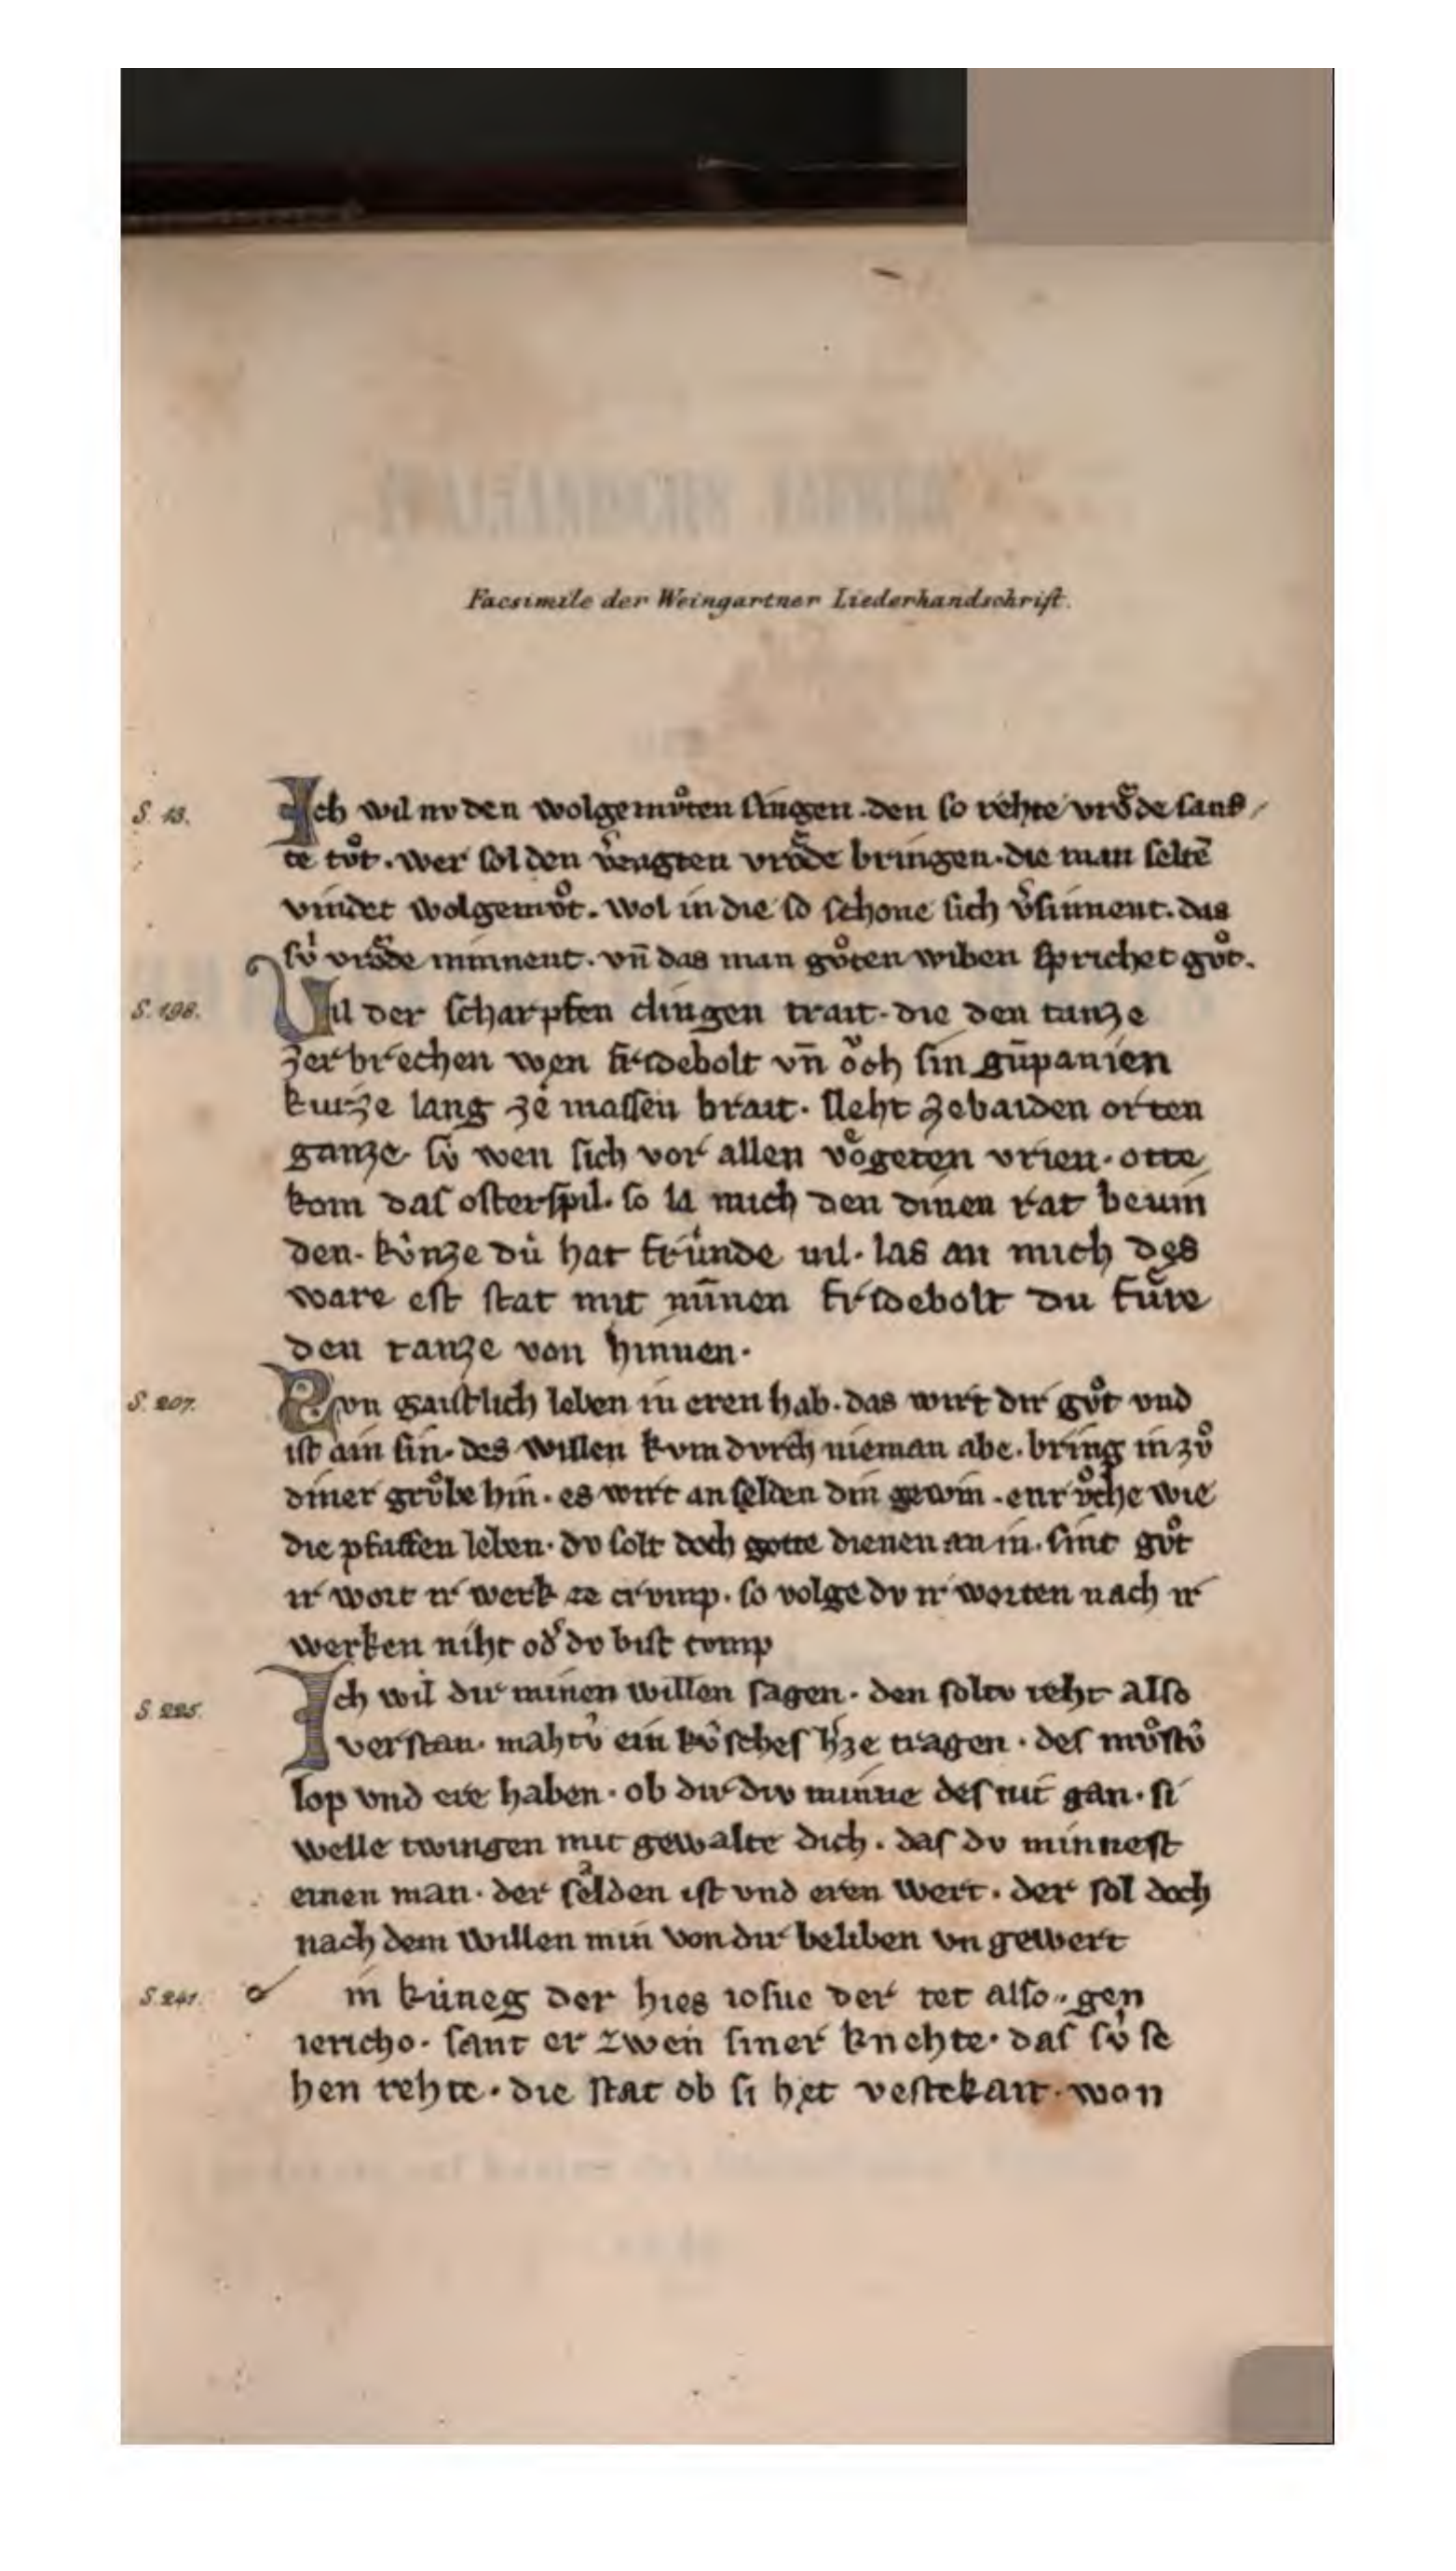 Facsimile der Weingartner Liederhandschrift.
S. 13. Ich wil nv den wolgemvͦten ſingen. den ſo rehte vroͤde ſanf
te tvͦt. wer ſol den vͤragten vroͤde bringen. die man ſeltē
vindet wolgemvͦt. wol in die ſo ſchone ſich vͤſinnent. das
ſv̍ vroͤde minnent. vn̄ das man gvͦten wiben ſprichet gvͦt.
S. 198. Uil der ſcharpfen clingen trait. die den tanze
zerbrechen wen fridebolt vn̄ oͮch ſin gūpanien
kurze lang ze maſſen brait. ſleht zebaiden orten
ganze. ſv̍ wen ſich vor allen voͤgeten vrien. otte
kom daſ oſterſpil. ſo la mich den dinen rat bevin
den. kv̍nze du̍ hat fru̍nde uil. las an mich des
ware eſt ſtat mit mīnen fridebolt du fu̍re
den tanze von hinnen.
S. 207. Svn gaiſtlich leben in eren hab. das wirt dir gvͦt vnd
iſt ain ſin. des willen kvm dvrch nieman abe. bring in zvͦ
diner grvͦbe hin. es wirt an ſelden din gewin. enrvͦche wie
die pfaffen leben. dv ſolt doch gotte dienen an in. ſint gvͦt
ir wort ir werk ze crvmp. ſo volge dv ir worten nach ir
werken niht od͛ dv biſt tvmp
S. 225. Ich wil dir minen willen ſagen. den ſoltv reht alſo
verſtan. mahtv̍ ein kv̍ſcheſ h͛ze tragen. deſ mvͦſtv̍
lop vnd ere haben. ob dir div minne deſ nit gan. ſi
welle twingen mit gewalte dich. daſ dv minneſt
einen man. der ſaͤlden iſt vnd eren wert. der ſol doch
nach dem willen min von dir beliben vn gewert
S. 241. in ku̍neg der hies ioſue der tet alſo. gen
iericho. ſant er zwen ſiner knehte. daſ ſv̍ ſe
hen rehte. die ſtat ob ſi het veſtekait. won